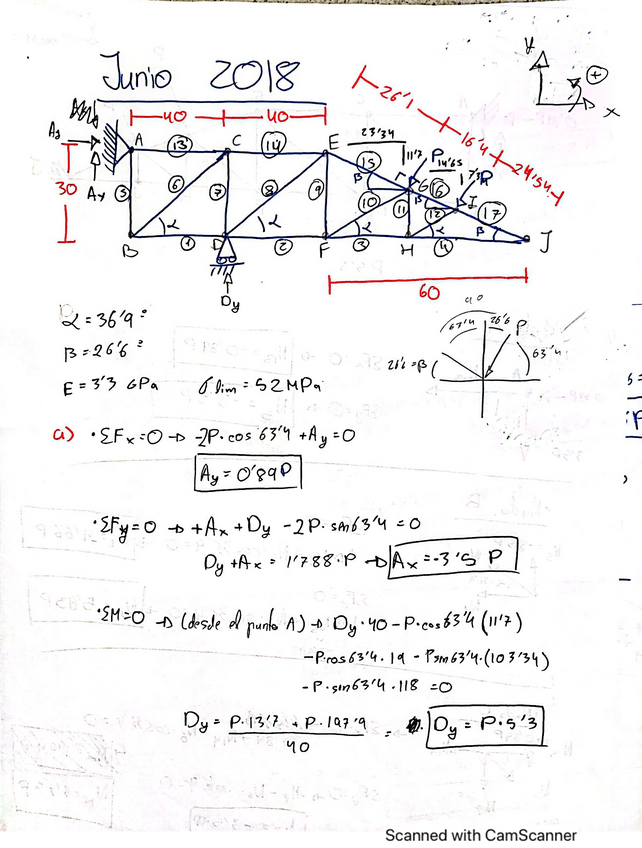 Junio 2018
y
+
x
26'1
16'4
24'54
40
40
23'34
11'7
P
14'65
A
13
C
14
E
15
G
16
17
30
5
6
7
8
9
10
11
12
I
J
α
α
α
α
β
β
β
B
1
D
2
F
3
H
4
Dy
60
α = 36'9°
β = 26'6°
E = 3'3 GPa σlim = 52 MPa
67'4 26'6 P
26'6 = β
63'4
a) · ΣFx=0 → -2P·cos 63'4 + Ay = 0
Ay = 0'89P
· ΣFy=0 → + Ax + Dy - 2P·sin 63'4 = 0
Dy + Ax = 1'788·P → Ax = -3'5 P
· ΣM=0 → (desde el punto A) → Dy·40 - P·cos 63'4 (11'7)
-P·cos 63'4·19 - P sin 63'4·(103'34)
-P·sin 63'4·118 = 0
Dy = P·13'7 + P·197'9 / 40 = Dy = P·5'3
Scanned with CamScanner